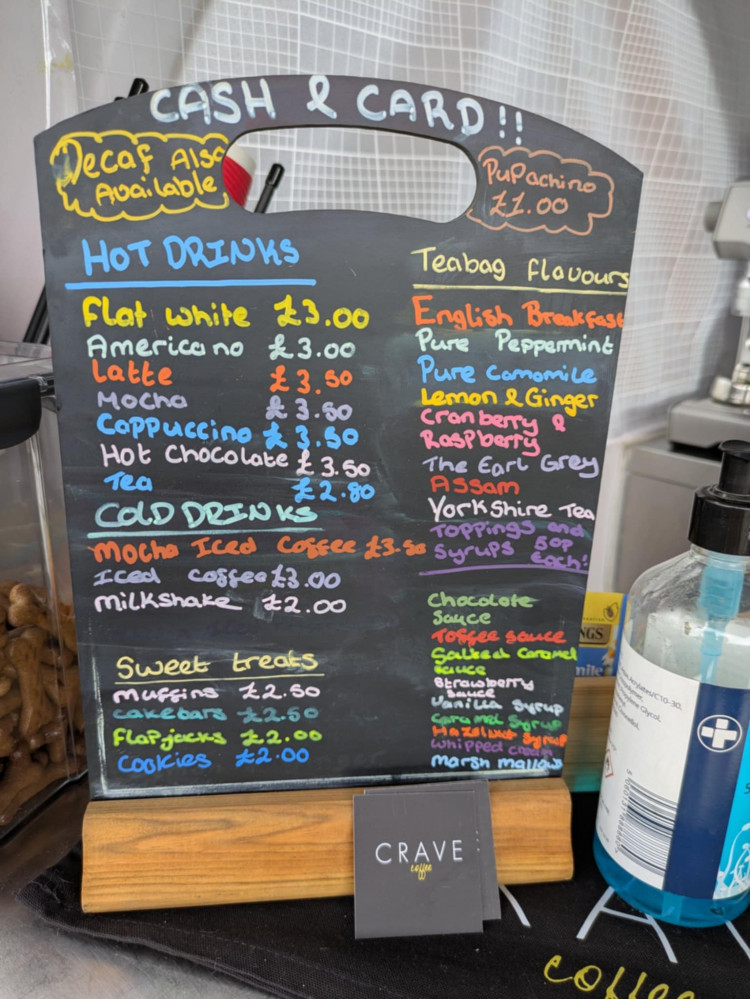 CASH & CARD!!
Decaf Also
Available
PuPachino
£1.00
HOT DRINKS
Flat white £3.00
Americano £3.00
Latte £3.50
Mocha £3.50
Cappuccino £3.50
Hot Chocolate £3.50
Tea £2.80
COLD DRINKS
Mocha Iced Coffee £3.50
Iced coffee £3.00
Milkshake £2.00
Sweet treats
Muffins £2.50
cakebars £2.50
Flapjacks £2.00
Cookies £2.00
Teabag flavours
English Breakfast
Pure Peppermint
Pure Camomile
Lemon & Ginger
Cranberry &
Raspberry
The Earl Grey
Assam
Yorkshire Tea
Toppings and
Syrups 50p
each!
Chocolate
Sauce
Toffee sauce
Salted Caramel
sauce
Strawberry
Sauce
Vanilla Syrup
Caramel Syrup
Hazelnut Syrup
Whipped cream
Marsh mallows
CRAVE
coffee
NGS
coffee